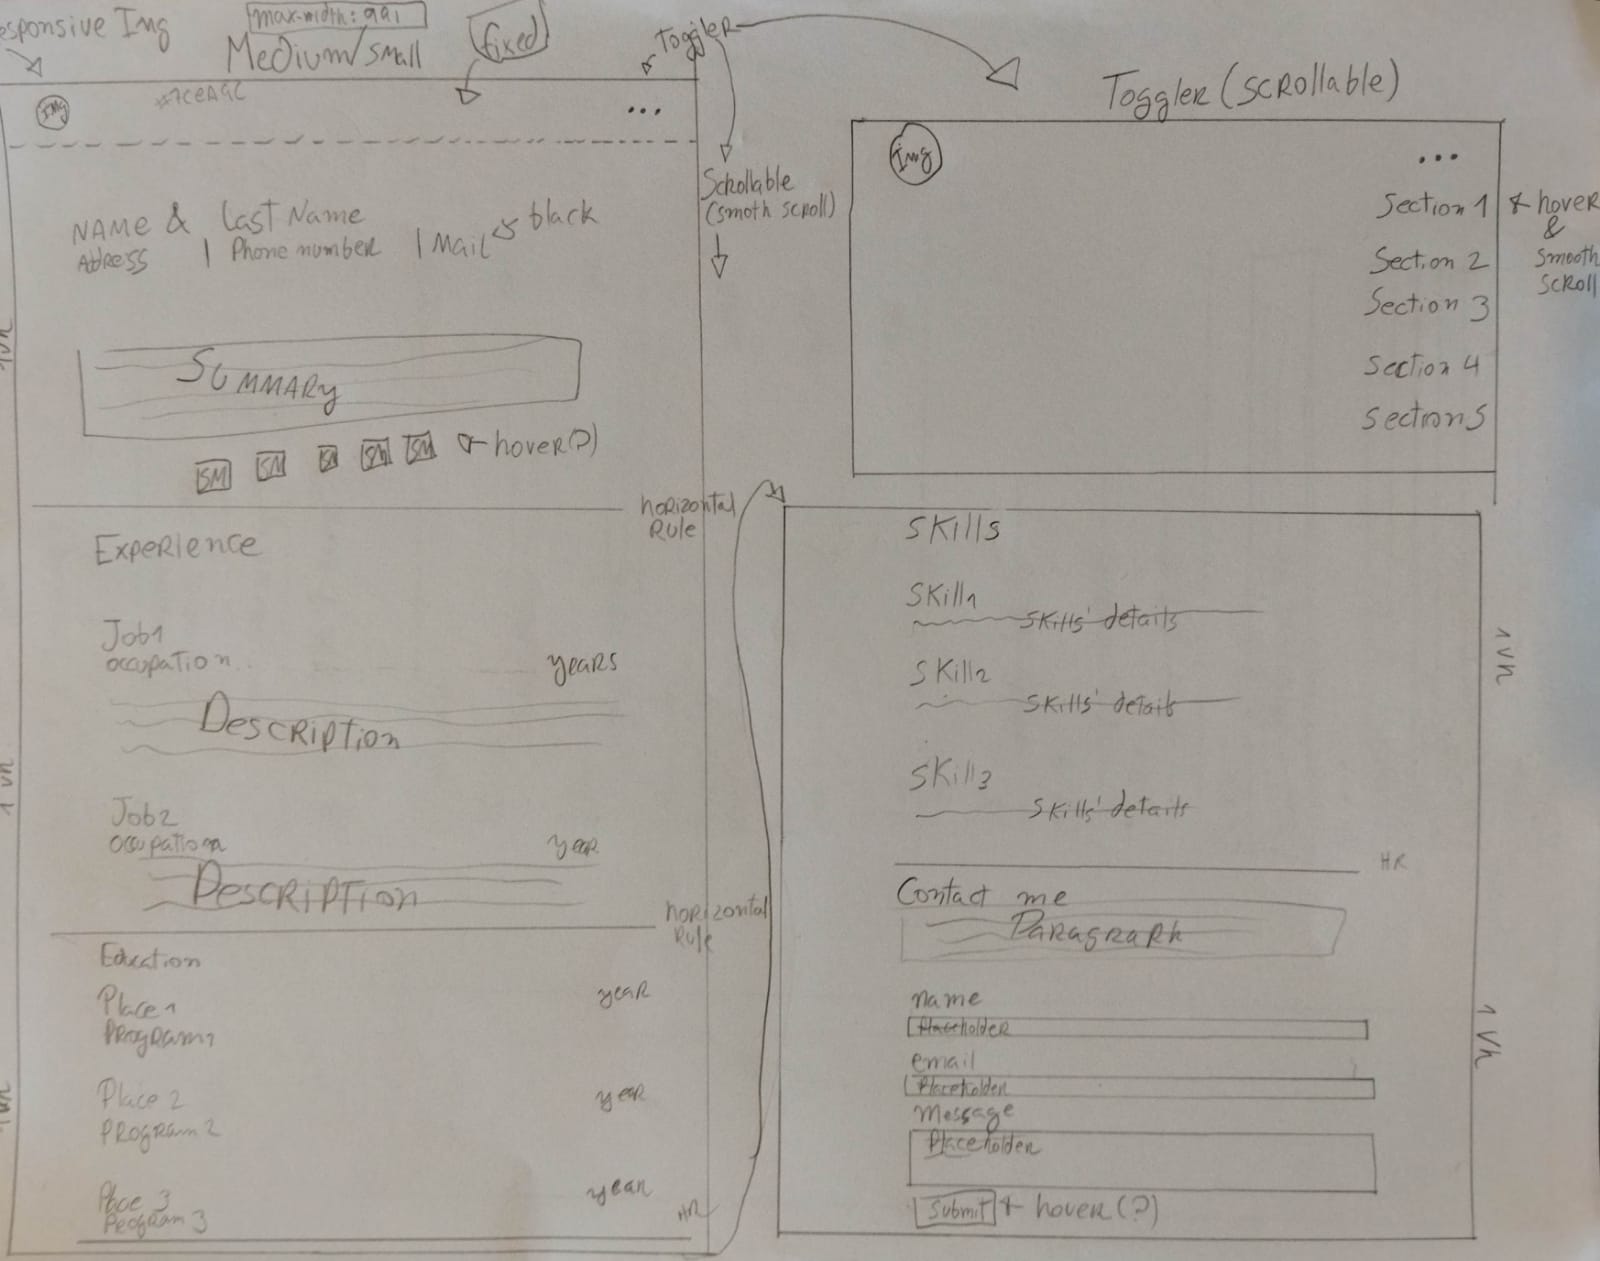 esponsive Img
max-width: 991
Medium/small
fixed
Toggler
Img
#7CeA9C
...
Scrollable
(smoth scroll)
NAME & Last Name
black
Address | Phone number | Mail
Summary
SM SM SM SM SM
hover(?)
horizontal
Rule
Experience
Job1
occupation
years
Description
Job2
occupation
year
Description
horizontal
Rule
Education
Place 1
year
Program1
Place 2
year
Program 2
Place 3
year
Program 3
HR
1 vh
Toggler (scrollable)
Img
...
Section 1
hover
&
smooth
scroll
Section 2
Section 3
Section 4
Section 5
Skills
Skill1
Skills' details
Skill2
Skills' details
Skill3
Skills' details
1 vh
HR
Contact me
Paragraph
name
Placeholder
email
Placeholder
Message
Placeholder
1 vh
Submit
hover (?)